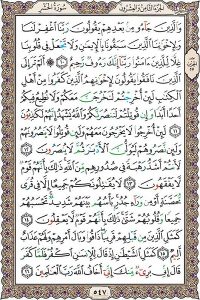 سُورَةُ الحَشْرِ الجُزْءُ الثَّامِنُ وَالعِشْرُونَ
وَالَّذِينَ جَاءُو مِنْ بَعْدِهِمْ يَقُولُونَ رَبَّنَا اغْفِرْ لَنَا
وَلِإِخْوَانِنَا الَّذِينَ سَبَقُونَا بِالْإِيمَانِ وَلَا تَجْعَلْ فِي قُلُوبِنَا
غِلًّا لِلَّذِينَ آمَنُوا رَبَّنَا إِنَّكَ رَءُوفٌ رَحِيمٌ ١٠ أَلَمْ تَرَ إِلَى
الَّذِينَ نَافَقُوا يَقُولُونَ لِإِخْوَانِهِمُ الَّذِينَ كَفَرُوا مِنْ أَهْلِ
الْكِتَابِ لَئِنْ أُخْرِجْتُمْ لَنَخْرُجَنَّ مَعَكُمْ وَلَا نُطِيعُ فِيكُمْ
أَحَدًا أَبَدًا وَإِنْ قُوتِلْتُمْ لَنَنْصُرَنَّكُمْ وَاللَّهُ يَشْهَدُ إِنَّهُمْ لَكَاذِبُونَ
١١ لَئِنْ أُخْرِجُوا لَا يَخْرُجُونَ مَعَهُمْ وَلَئِنْ قُوتِلُوا لَا يَنْصُرُونَهُمْ
وَلَئِنْ نَصَرُوهُمْ لَيُوَلُّنَّ الْأَدْبَارَ ثُمَّ لَا يُنْصَرُونَ ١٢
لَأَنْتُمْ أَشَدُّ رَهْبَةً فِي صُدُورِهِمْ مِنَ اللَّهِ ذَلِكَ بِأَنَّهُمْ قَوْمٌ
لَا يَفْقَهُونَ ١٣ لَا يُقَاتِلُونَكُمْ جَمِيعًا إِلَّا فِي قُرًى
مُحَصَّنَةٍ أَوْ مِنْ وَرَاءِ جُدُرٍ بَأْسُهُمْ بَيْنَهُمْ شَدِيدٌ تَحْسَبُهُمْ
جَمِيعًا وَقُلُوبُهُمْ شَتَّى ذَلِكَ بِأَنَّهُمْ قَوْمٌ لَا يَعْقِلُونَ ١٤
كَمَثَلِ الَّذِينَ مِنْ قَبْلِهِمْ قَرِيبًا ذَاقُوا وَبَالَ أَمْرِهِمْ وَلَهُمْ عَذَابٌ
أَلِيمٌ ١٥ كَمَثَلِ الشَّيْطَانِ إِذْ قَالَ لِلْإِنْسَانِ اكْفُرْ فَلَمَّا كَفَرَ
قَالَ إِنِّي بَرِيءٌ مِنْكَ إِنِّي أَخَافُ اللَّهَ رَبَّ الْعَالَمِينَ ١٦
٥٤٧